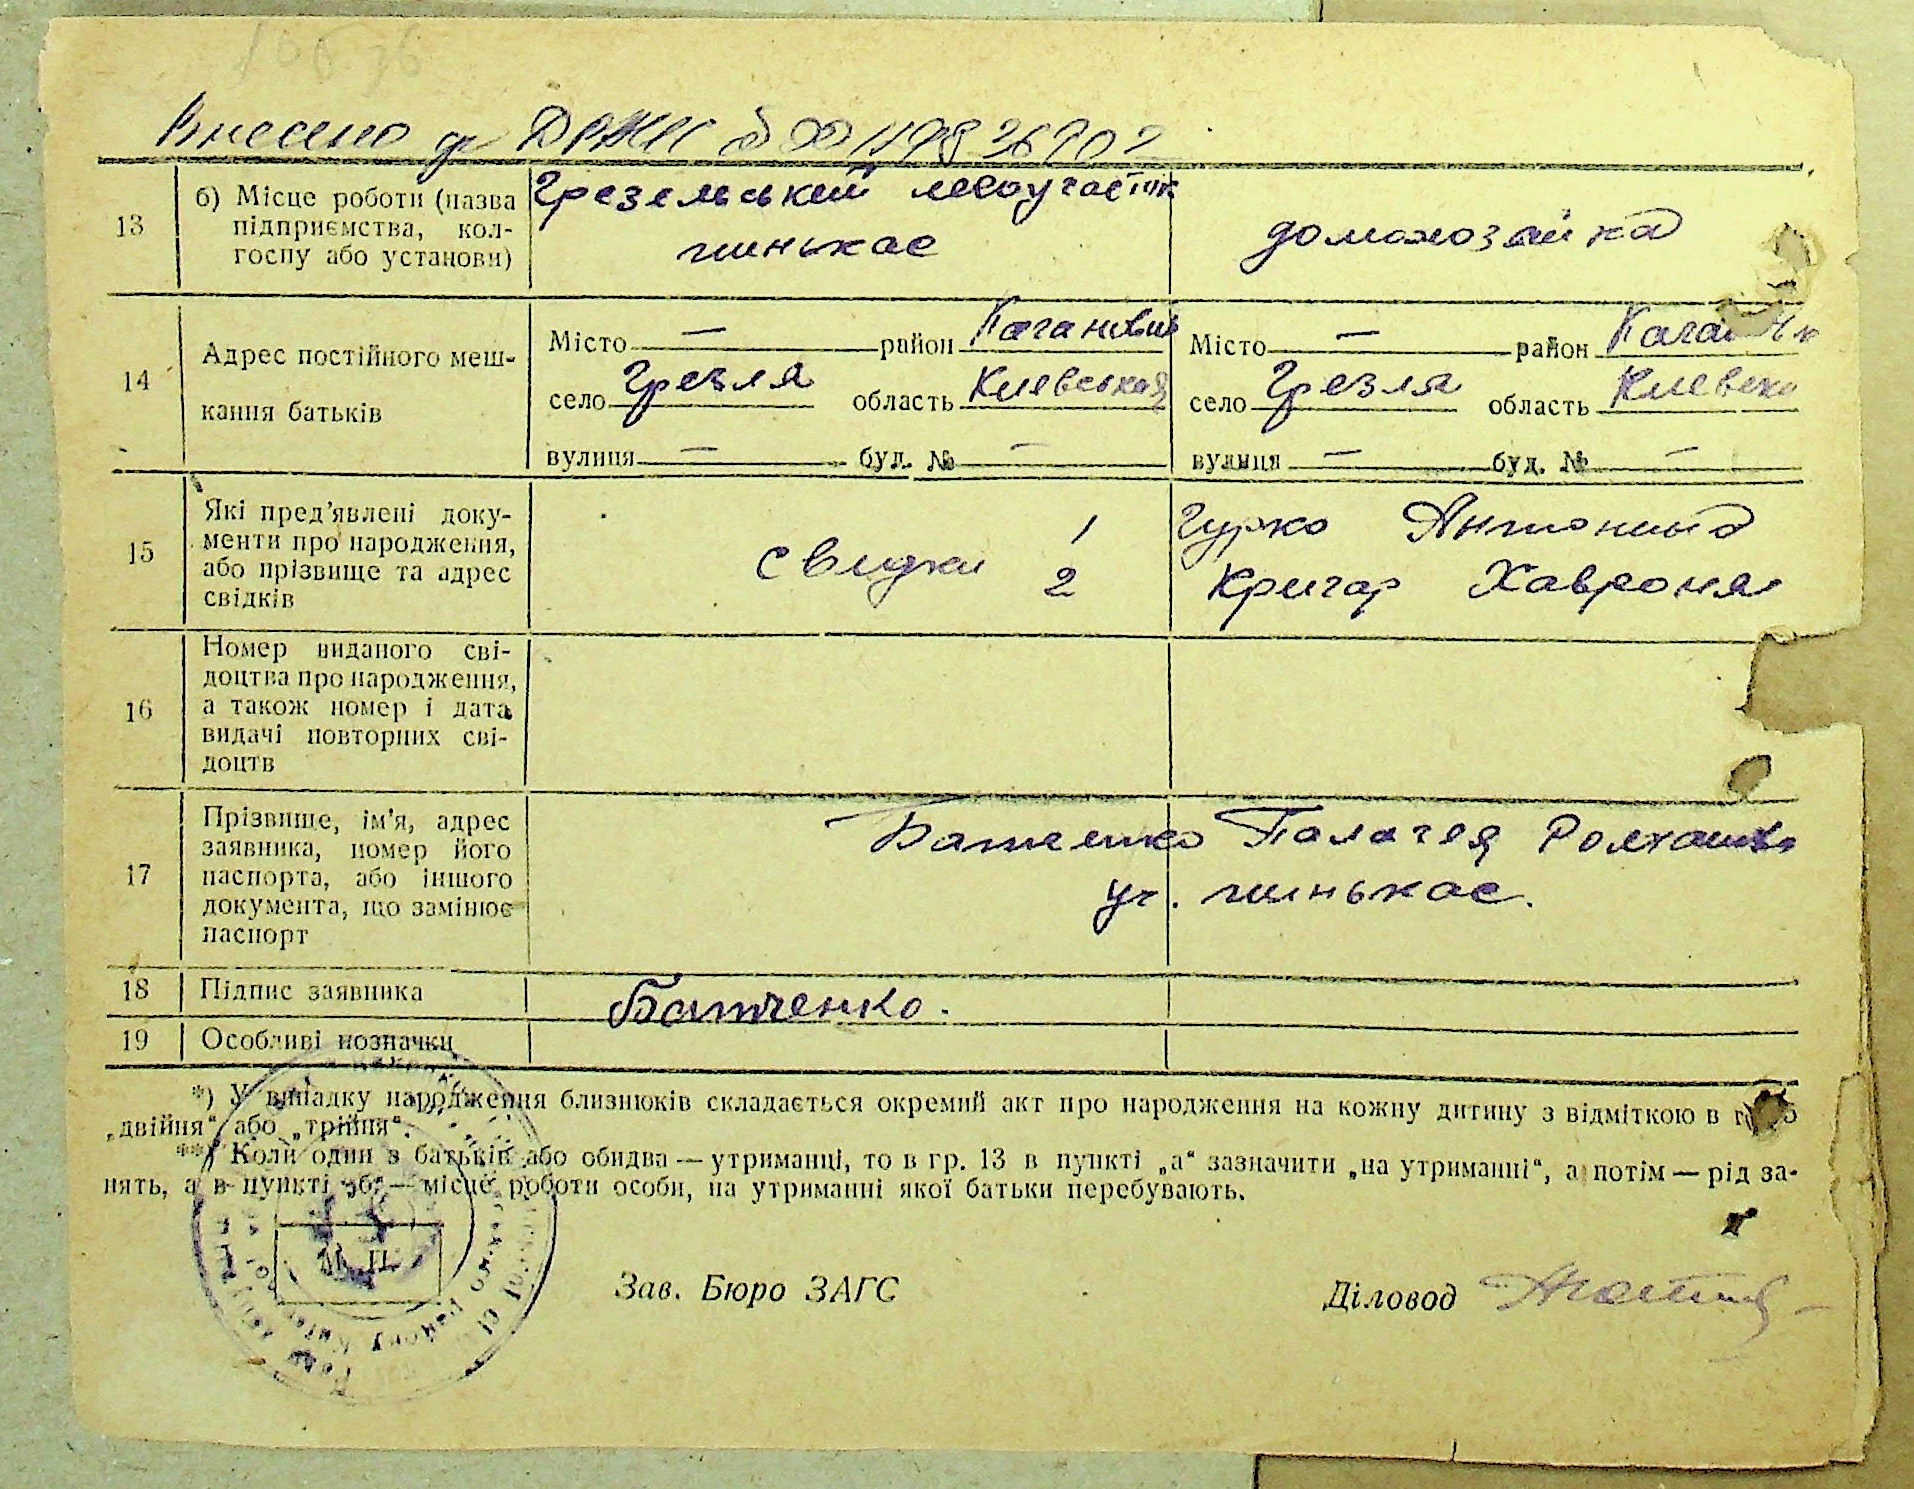 Внесено до
13
б) Місце роботи (назва
підприємства, кол-
госпу або установи)
Грезельський лесоучасток
шинькає
домохозяйка
14
Адрес постійного меш-
кання батьків
Місто — район Каганович
село Грезля область Киевськая
вулиця — буд. № —
Місто — район
село Грезля область Киевска
вулиця — буд. № —
15
Які пред'явлені доку-
менти про народження,
або прізвище та адрес
свідків
свидки 1 Гурко Антонина
2 Кригар Хавроня
16
Номер виданого сві-
доцтва про народження,
а також номер і дата
видачі повторних сві-
доцтв
17
Прізвище, ім'я, адрес
заявника, номер його
паспорта, або іншого
документа, що замінює
паспорт
Батченко Палагея
уч. шинькає.
18
Підпис заявника
Батченко.
19
Особливі позначки
*) У випадку народження близнюків складається окремий акт про народження на кожну дитину з відміткою в
„двійня“ або „трійня“.
**) Коли один з батьків або обидва — утриманці, то в гр. 13 в пункті „а“ зазначити „на утриманні“, а потім — рід за-
нять, а в пункті „б“ — місце роботи особи, на утриманні якої батьки перебувають.
М. П.
Зав. Бюро ЗАГС
Діловод